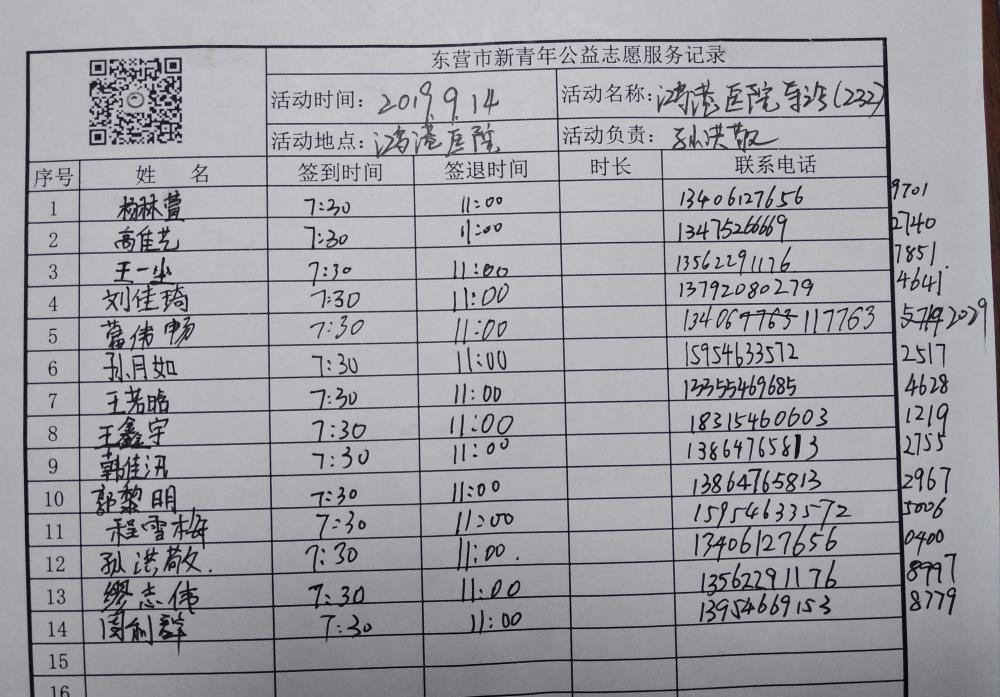 东营市新青年公益志愿服务记录
活动时间： 2019.9.14 活动名称：鸿港医院导诊(232)
活动地点：鸿港医院 活动负责：孙洪敬
序号 姓 名 签到时间 签退时间 时长 联系电话
1 杨林萱 7:30 11:00 13406127656 9701
2 高佳艺 7:30 11:00 13475266669 2740
3 王一 7:30 11:00 13562291176 7851
4 刘佳琦 7:30 11:00 13792080279 4641
5 伟畅 7:30 11:00 117763 2029
6 孙月如 7:30 11:00 15954633572 2517
7 王若晗 7:30 11:00 13355469685 4628
8 王鑫宇 7:30 11:00 18315460603 1219
9 韩佳汛 7:30 11:00 13864765813 2755
10 郭黎明 7:30 11:00 13864765813 2967
11 程雪梅 7:30 11:00 15954633572 5006
12 孙洪敬. 7:30 11:00. 13406127656 0400
13 缪志伟 7:30 11:00 13562291176 8997
14 周利群 7:30 11:00 13954669153 8779
15
16